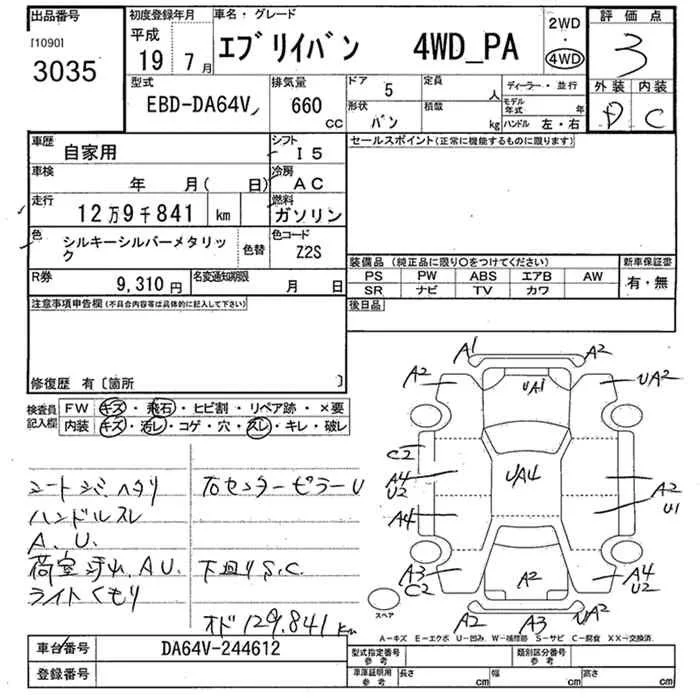 出品番号
[1090]
3035
初度登録年月
平成
19 7月
車名・グレード
エブリイバン 4WD_PA
2WD
・
4WD
評価点
3
外装 内装
D C
型式
EBD-DA64V
排気量
660
CC
ドア 5
定員
人
形状
バン
積載
kg
ディーラー・並行
モデル年式 年
ハンドル 左・右
車歴
自家用
シフト
I5
車検
年 月( 日)
冷房
AC
走行
12万9千841 km
燃料
ガソリン
色
シルキーシルバーメタリック
色替
色コード
Z2S
R券
9,310円
名変通知期限
月 日
セールスポイント(正常に機能するものに限ります)
装備品(純正品に限り○をつけてください)
PS PW ABS エアB AW
SR ナビ TV カワ
新車保証書
有・無
後日品
注意事項申告欄(不具合内容等は具体的に記入して下さい)
修復歴 有〔箇所 〕
検査員記入欄
FW キズ・飛石・ヒビ割・リペア跡・×要
内装 キズ・汚レ・コゲ・穴・スレ・キレ・破レ
ハンドルスレ
A. U.
ライトくもり
右センターピラーU
下回りS.C.
オド129.841km
A1 A2
A2 UA1 UA2
C2
A4 U2
UA4
A2 U1
A4
A3 C2
A2
A4 U2
スペア
A2 A3 UA2
A−キズ E−エクボ U−凹み W−補修跡 S−サビ C−腐食 XX−交換済
車台番号
DA64V-244612
登録番号
型式指定番号
参考
類別区分番号
参考
車庫証明用
参考
長さ cm
幅 cm
高さ cm